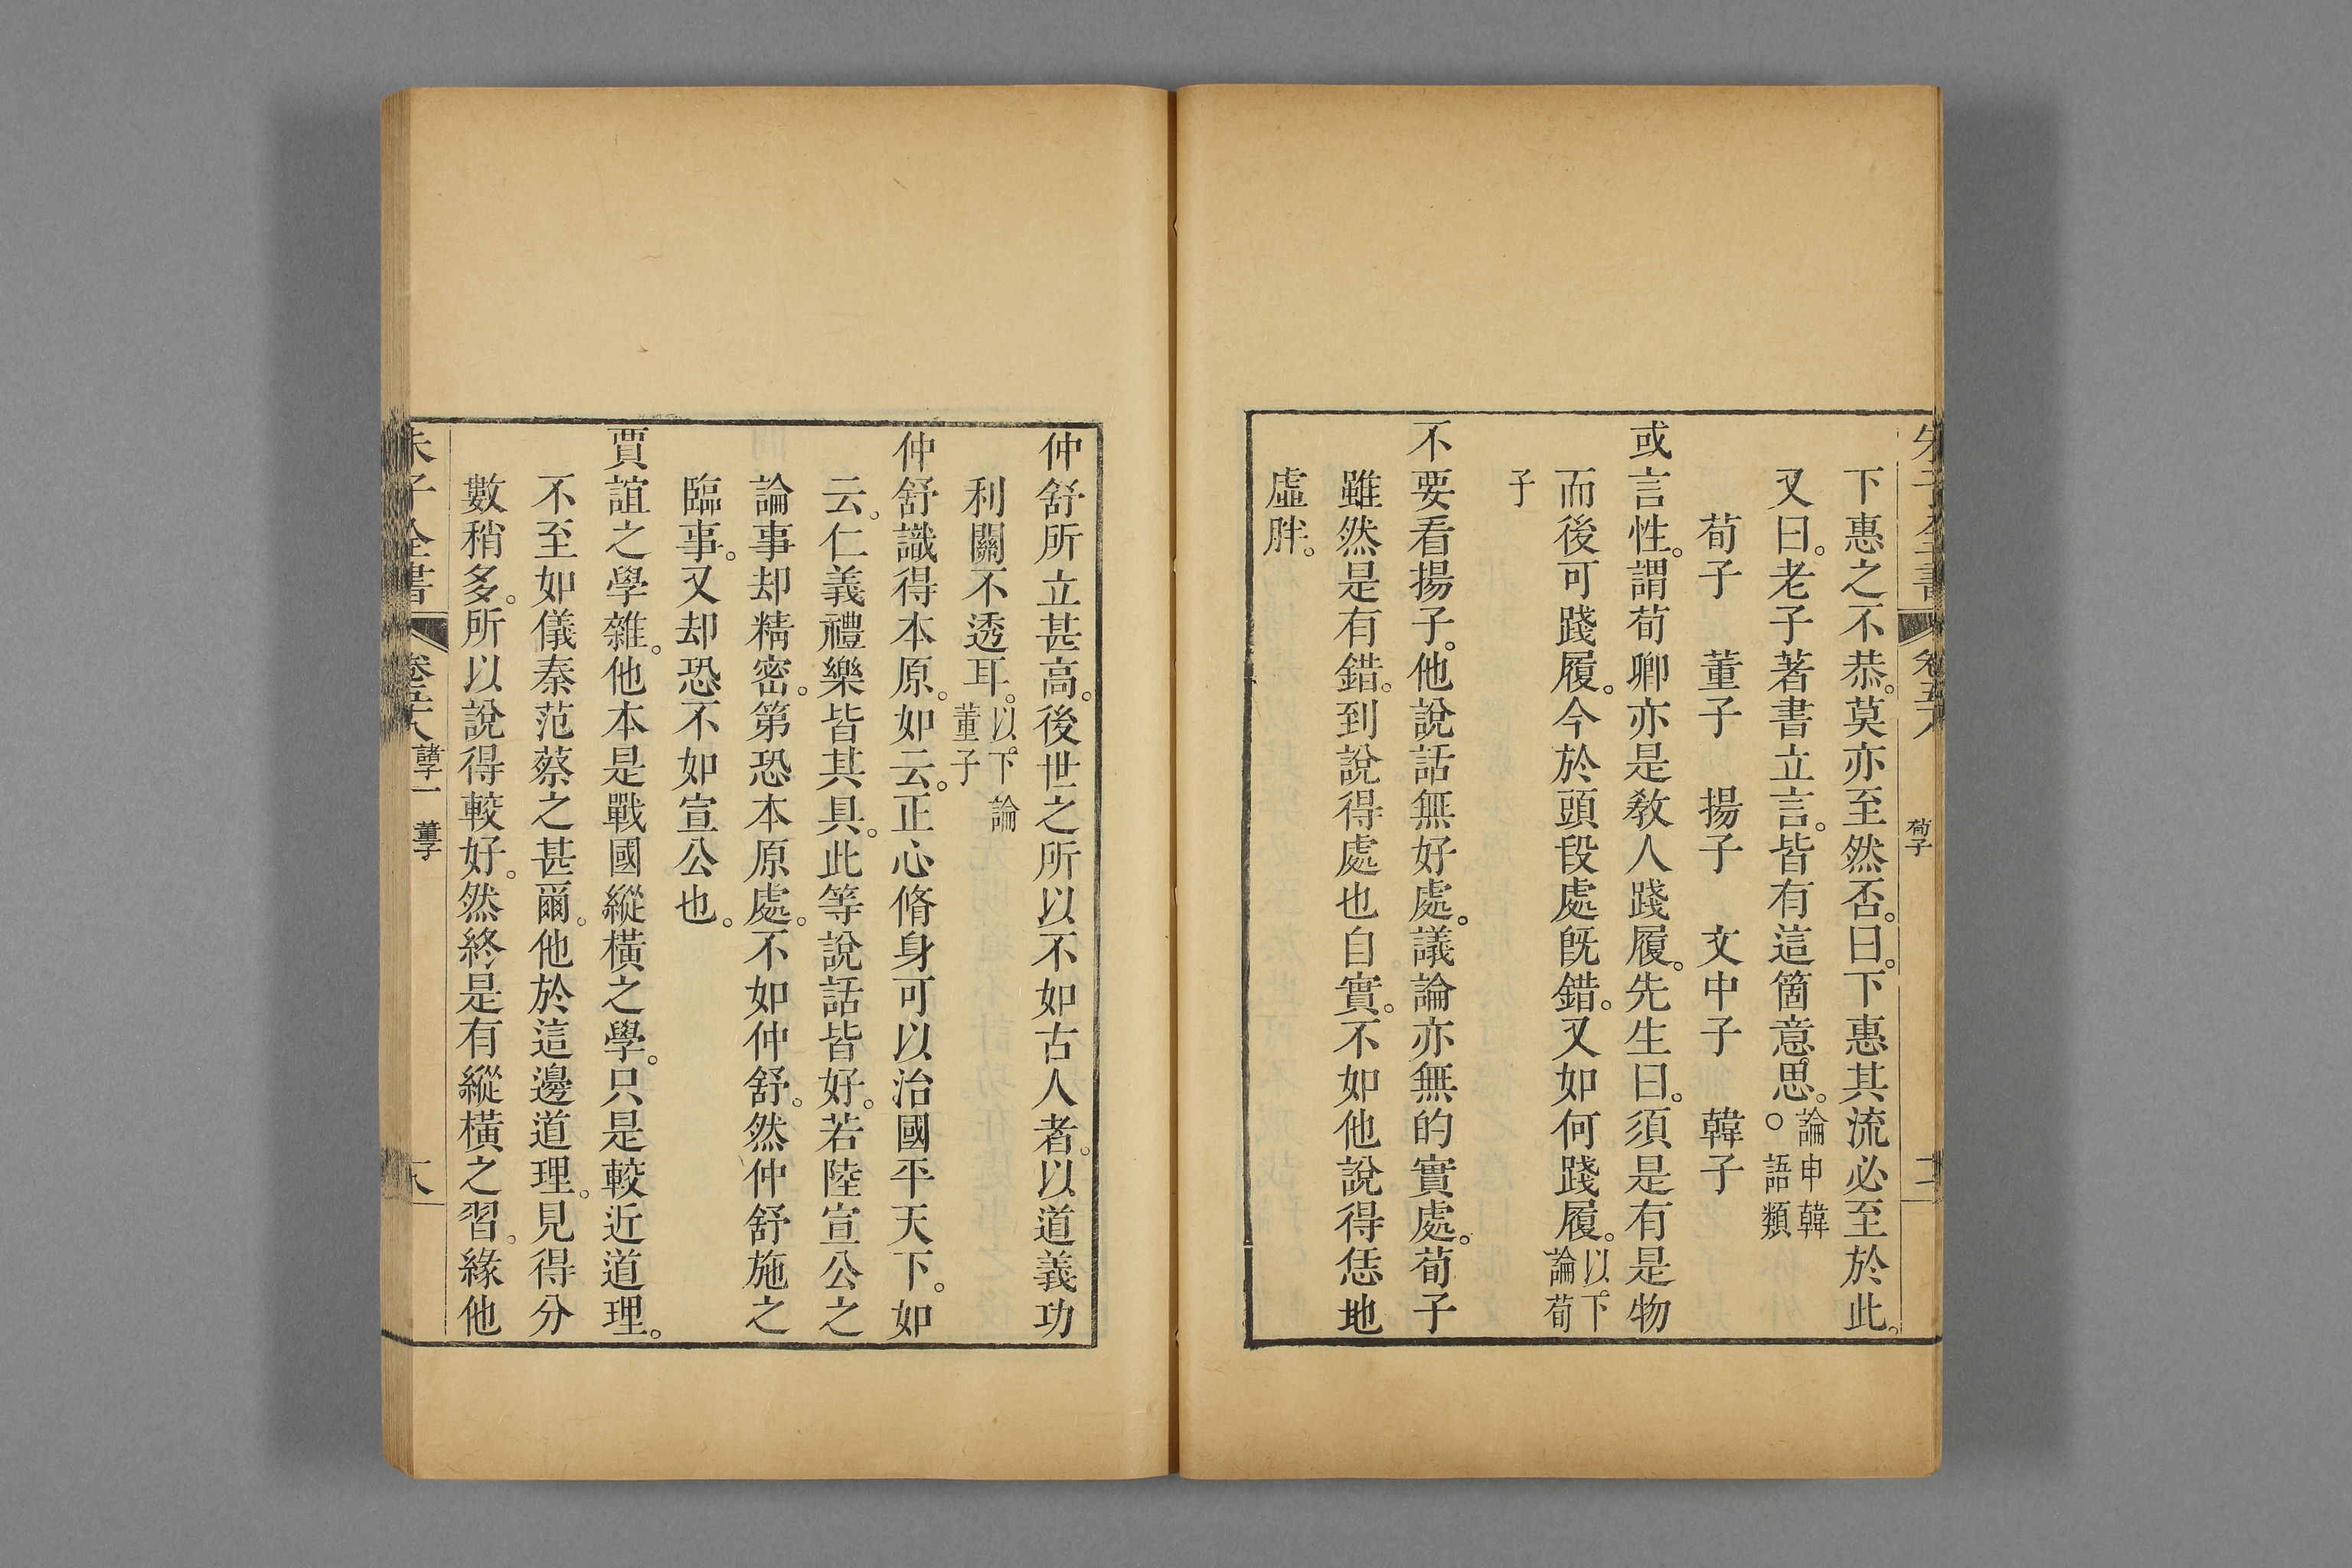 下惠之不恭。莫亦至然否。曰。下惠其流必至於此。
又曰。老子著書立言。皆有這箇意思。○論申韓語類
荀子　董子　揚子　文中子　韓子
或言性。謂荀卿亦是敎人踐履。先生曰。須是有是物
而後可踐履。今於頭段處旣錯。又如何踐履。以下論荀
子
不要看揚子。他說話無好處。議論亦無的實處。荀子
雖然是有錯。到說得處也自實。不如他說得恁地
虛胖。
仲舒所立甚高。後世之所以不如古人者。以道義功
利關不透耳。以下論董子
仲舒識得本原。如云。正心脩身可以治國平天下。如
云。仁義禮樂皆其具。此等說話皆好。若陸宣公之
論事却精密。第恐本原處。不如仲舒。然仲舒施之
臨事。又却恐不如宣公也。
賈誼之學雜。他本是戰國縱橫之學。只是較近道理。
不至如儀秦范蔡之甚爾。他於這邊道理。見得分
數稍多。所以說得較好。然終是有縱橫之習。緣他
朱子全書　卷五十八　諸子一　董子